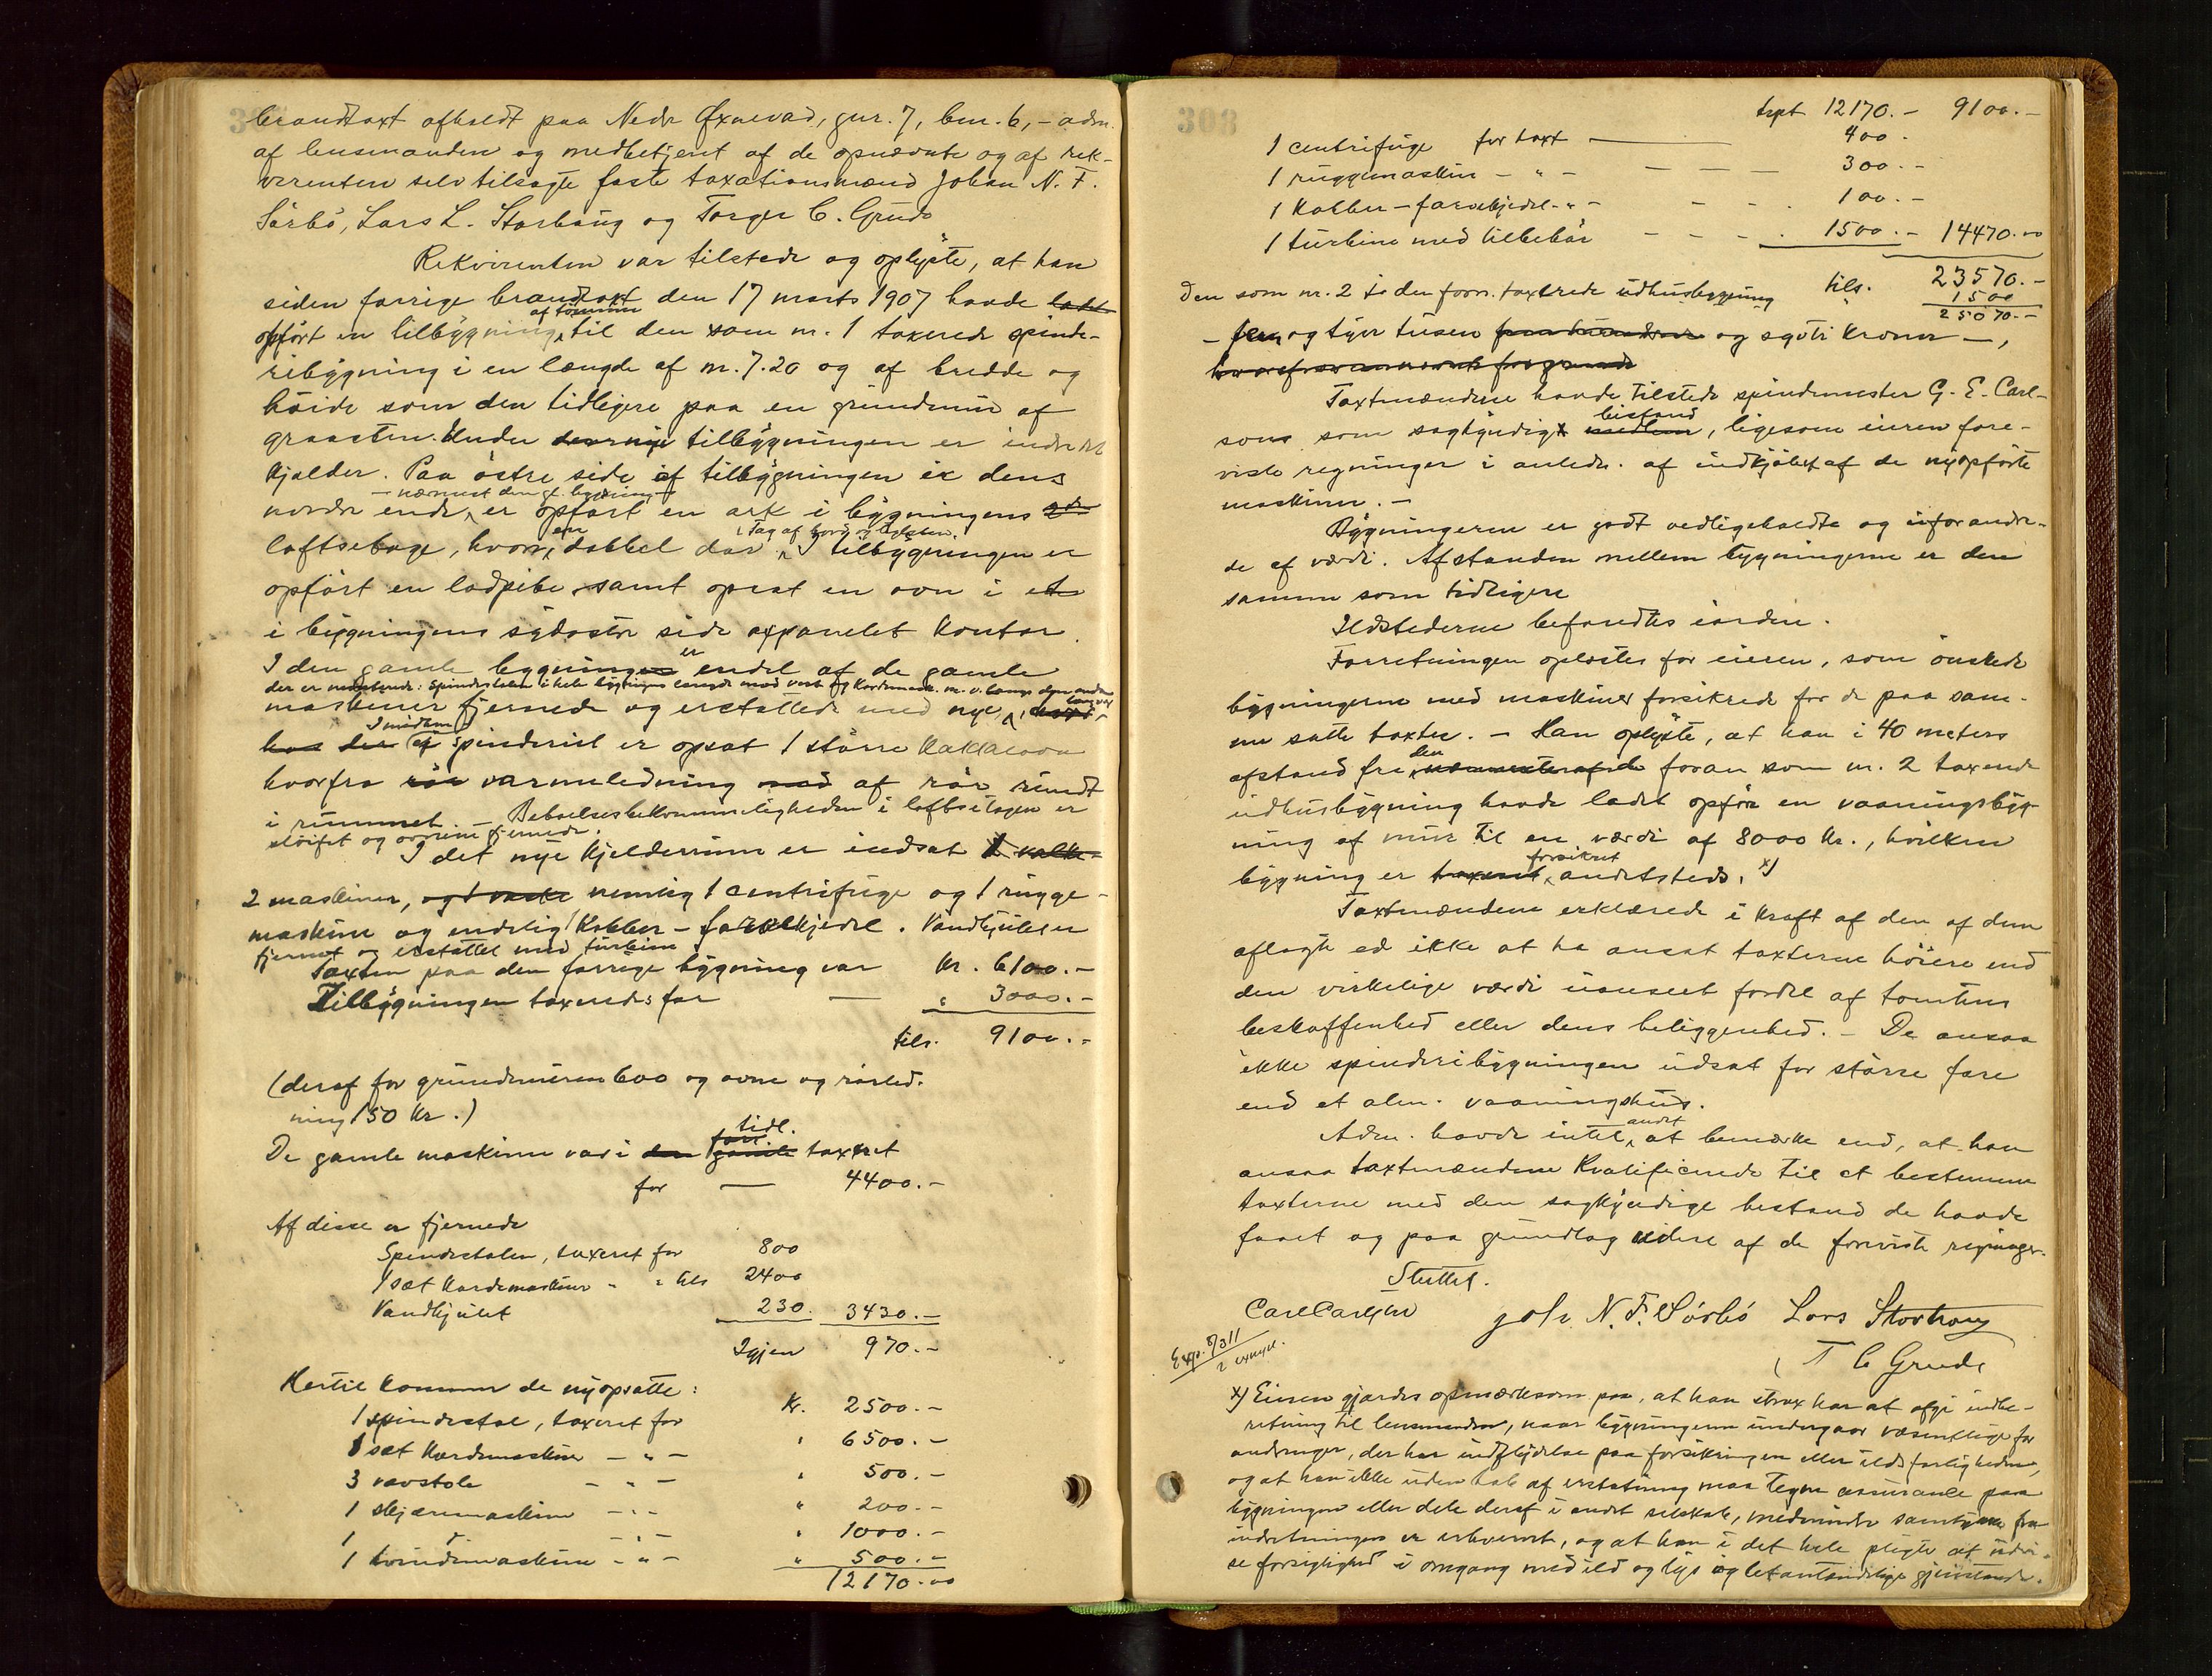 brandtaxt afholdt paa Nedr Øxnevad, gnr. 7, bnr. 6, – adm.
af lensmanden og medbetjent af de opnævnte og af rek-
virenten selv tilsagte faste taxationsmænd Johan N. F.
Sörbö, Lars L. Storhaug og Torger C. Grude
Rekvirenten var tilstede og oplyste, at han
siden forrige brandtaxt den 17 marts 1907 havde ladet
af tømmer
opført en tilbygning til den som nr. 1 taxerede spinde-
ribygning i en længde af m. 7.20 og af bredde og
höide som den tidligere paa en grundmur af
graasten. Under den nye tilbygningen er indredet
kjelder. Paa östre side af tilbygningen er dens
– nærmest den gl. bygning –
nordre ende, er opført en ark i bygningens
en Tag af bord og teglsten.
loftsetage, hvori dobbel dør. I tilbygningen er
opført en ladpibe samt opsat en ovn i et
i bygningens sydöstre side oppanelet kontor.
er
I den gamle bygningen endel af de gamle
der er monterede: Spindestolen i hele bygningens længde mod vest og Kardemask. m. v. langs den anden
langvæg
maskiner fjernede og erstattede med nye,
I midten
hos der af spinderiet er opsat 1 större kakkelovn
hvorfra rör varmeledning med af rör rundt
i rummet. – Beboelsesbekvemmeligheden i loftsetagen er
slöifet og ovnene fjernede.
I det nye kjelderrum er indsat 1 valke-
2 maskiner, og 1 vaske nemlig 1 centrifuge og 1 rugge-
maskine og endelig 1 Kobber – farvekjedel. Vandhjulet er
fjernet og erstattet med turbine
Taxten paa den forrige bygning var Kr. 6100.–
Tilbygningen taxeredes for — " 3000.–
tils. 9100.–
(deraf for grundmuren 600 og ovne og rörled-
ning 150 Kr.)
tidl.
forr.
De gamle maskiner var i den gamle taxeret
for — 4400.–
Af disse er fjernede
Spindestolen, taxeret for 800
1 sæt Kardemaskiner - " tils 2400
Vandhjulet 230. 3430.–
Igjen 970.–
Hertil kommer de nyopsatte:
1 spindestol, taxeret for Kr. 2500.–
1 sæt Kardemaskine – " – " 6500.–
3 vævstole – " – " 500.–
1 skjæremaskine – " – " 200.–
1 d. – " – " 1000.–
1 tvindemaskine – " – " 500.–
12170.00
308
trpt 12170.– 9100.–
1 centrifuge for taxt — 400.
1 ruggemaskin – " – 300.–
1 Kobber – farvekjedel – " – 100.–
1 turbine med tilbehör 1500.– 14470.00
Den som nr. 2 i den forr. taxtrede udhusbygning tils. 23570.–
1500
25070.–
– fem og tyve tusen fem hundrede og sytti kroner –,
Taxtmændene havde tilstede spindemester G. E. Carl-
bistand
sons som sagkyndigt medlem, ligesom eieren fore-
viste regninger i anledn. af indkjöbet af de nyopførte
maskiner. –
Bygningerne er godt vedligeholdte og uforandre-
de af værdi. Afstanden mellem bygningerne er den
samme som tidligere
Ildstederne befandtes iorden.
Forretningen oplæstes for eieren, som önskede
bygningerne med maskiner forsikrede for de paa sam-
me satte taxter. – Han oplyste, at han i 40 meters
den
afstand fra nærmeste af de foran som nr. 2 taxerede
udhusbygning havde ladet opføre en vaaningsbyg-
ning af mur til en værdi af 8000 Kr., hvilken
forsikret
bygning er taxeret andetsteds. x)
Taxtmændene erklærede i kraft af den af dem
aflagte ed ikke at ha ansat taxterne höiere end
den virkelige værdi uanseet fordel af tomtens
beskaffenhed eller dens beliggenhed. – De ansaa
ikke spinderibygningen udsat for större fare
end et alm. vaaningshus.
andet
Adm. havde intet at bemerke end, at han
ansaa taxtmændene kvalificerede til at bestemme
taxterne med den sagkyndige bestand de havde
faaet og paa grundlag videre af de foreviste regninger.
Sluttet.
Carl Carlsen Joh N. F. Sörbö Lars Storhaug
T C Grude
Exp. 8/3 11
2 exempl.
x) Eieren gjordes opmærksom paa, at han strax har at afgi indbe-
retning til lensmanden, naar bygningerne undergaar væsentlige for
andringer, der har indflydelse paa forsikringen eller ildsfarligheden,
og at han ikke uden tab af erstatning maa tegne assurance paa
bygningen eller dele deraf i andet selskab, medmindre samtykke fra
indretningen er erhvervet, og at han i det hele pligter at udvi-
se forsigtighed i omgang med ild og lys og letantændelige gjenstande.